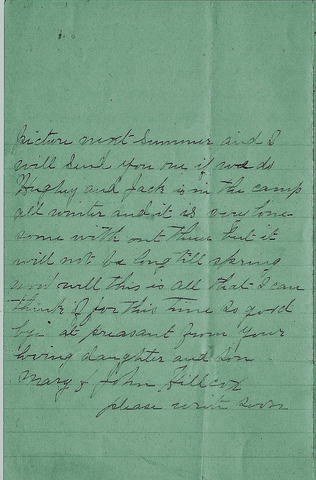 picture next Summer and I
will send you one if we do
Hughy and Jack is in the camp
all winter and it is very lone
some with out them but it
will not be long till spring
now well this is all that I can
think of for this time so good
by at preasant from your
loving daughter and son
Mary & John Sillcox
please write soon